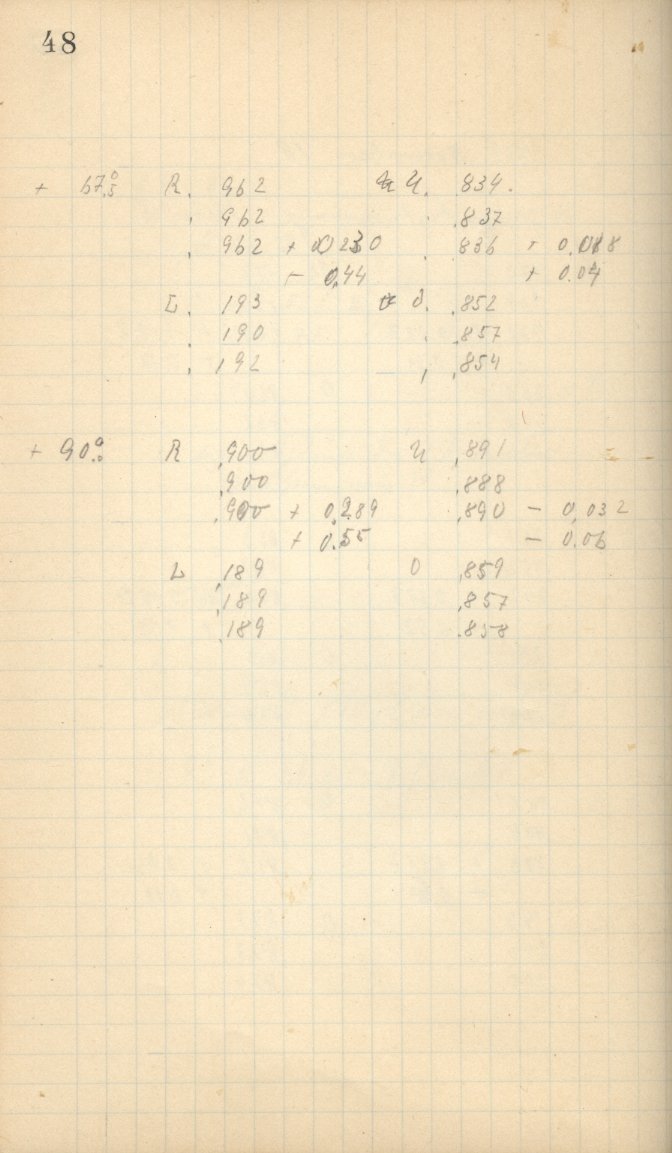 48
+ 67°.5 R. .962 U. .834.
. .962 . .837
. .962 + 0.230 . .836 + 0.018
- 0.44 + 0.04
L. .193 O. .852
. .190 . .857
. .192 . .854
+ 90°.0 R .900 U .891
.900 .888
.900 + 0.289 .890 - 0.032
+ 0.55 - 0.06
L .189 O .859
.189 .857
.189 .858